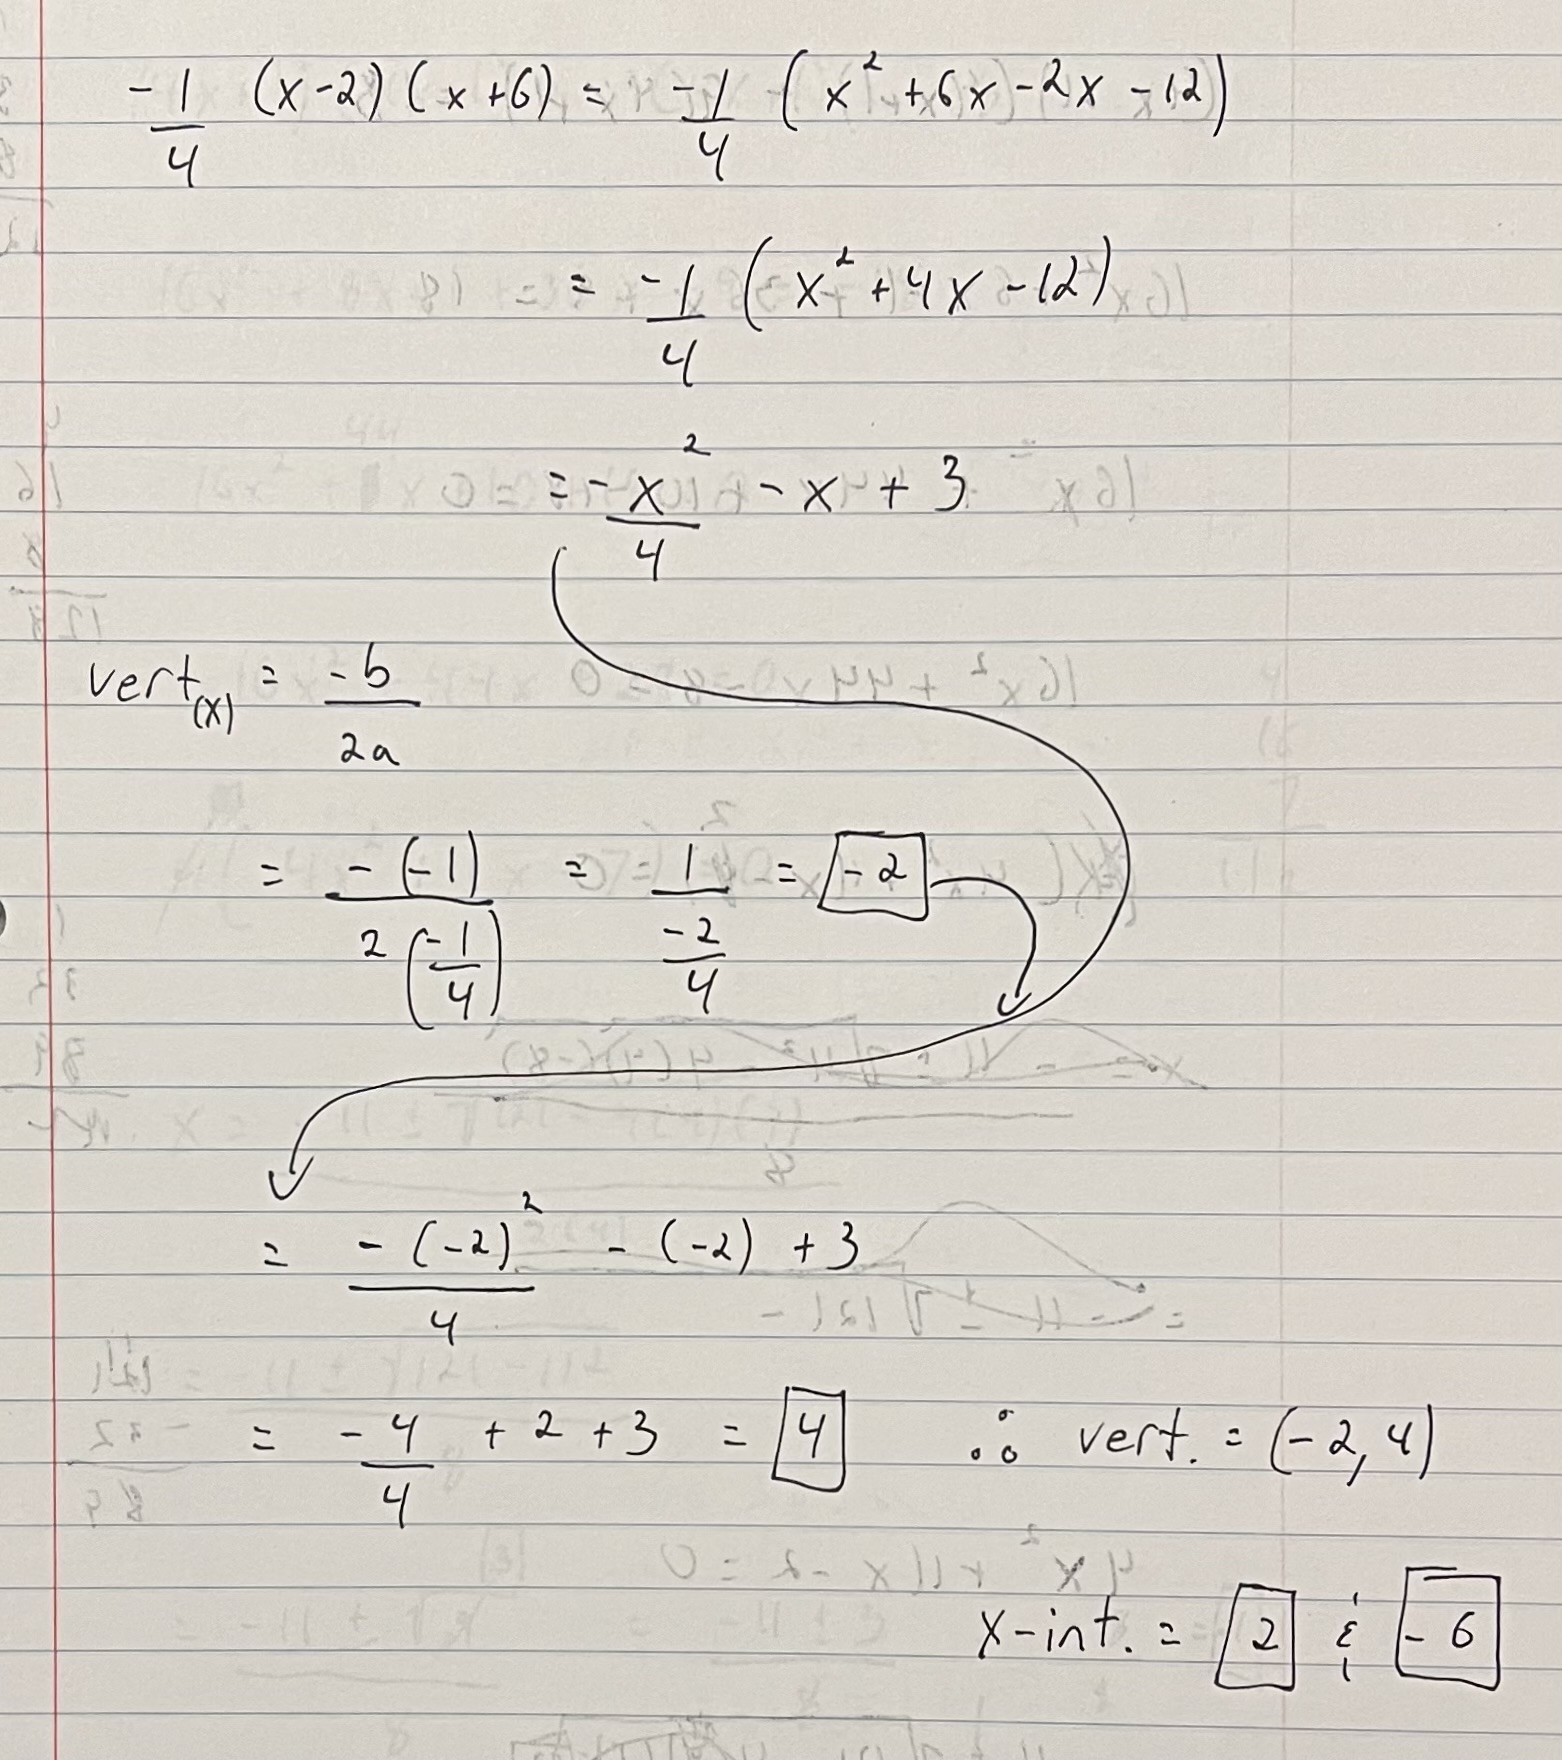 -1/4 (x-2)(x+6) = -1/4 (x² + 6x - 2x - 12)
= -1/4 (x² + 4x - 12)
= -x²/4 - x + 3
vert(x) = -b/2a
= -(-1)/2(-1/4) = 1/(-2/4) = -2
= -(-2)²/4 - (-2) + 3
= -4/4 + 2 + 3 = 4 ∴ vert. = (-2, 4)
x-int. = 2 & -6